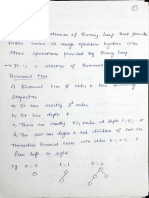 ①
extension of Binary heap that provide
faster union or merge operation together with
other operations provided by Binary heap.
→ It is a collection of Binomial
Binomial Tree:-
A Binomial tree of order k has following
properties.
a) It has exactly 2^k nodes
b) It has depth k
c) There are exactly nodes at depth i
d) The root has degree k and children of root are
themselves Binomial trees with order k-1, k-2,
from left to right
k = 0 k = 1 k = 2